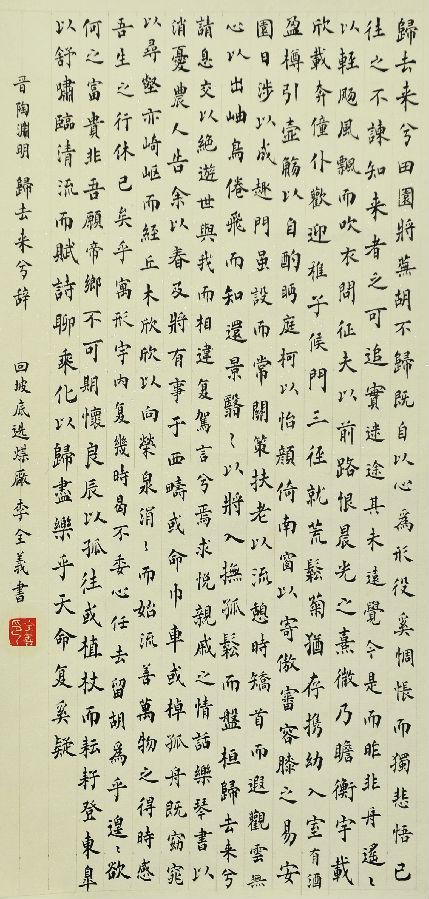 歸去来兮田園將蕪胡不歸既自以心為形役奚惆悵而獨悲悟已
往之不諫知来者之可追實迷途其未遠覺今是而昨非舟遥〻
以輕颺風飄而吹衣問征夫以前路恨晨光之熹微乃瞻衡宇載
欣載奔僮仆歡迎稚子候門三徑就荒鬆菊猶存携幼入室有酒
盈樽引壺觴以自酌眄庭柯以怡顏倚南窗以寄傲審容膝之易安
園日涉以成趣門虽設而常關策扶老以流憩時矯首而遐觀雲無
心以出岫鳥倦飛而知還景翳〻以將入撫孤鬆而盤桓歸去来兮
請息交以絶遊世與我而相違复駕言兮焉求悦親戚之情話樂琴書以
消憂農人告余以春及將有事于西疇或命巾車或棹孤舟既窈窕
以尋壑亦崎岖而經丘木欣欣以向榮泉涓〻而始流善萬物之得時感
吾生之行休已矣乎寓形宇内复幾時曷不委心任去留胡為乎遑〻欲
何之富貴非吾願帝鄉不可期懷良辰以孤往或植杖而耘耔登東皐
以舒嘯臨清流而賦詩聊乘化以歸盡樂乎天命复奚疑
晋陶淵明 歸去来兮辭 回坡底选煤廠李全義書